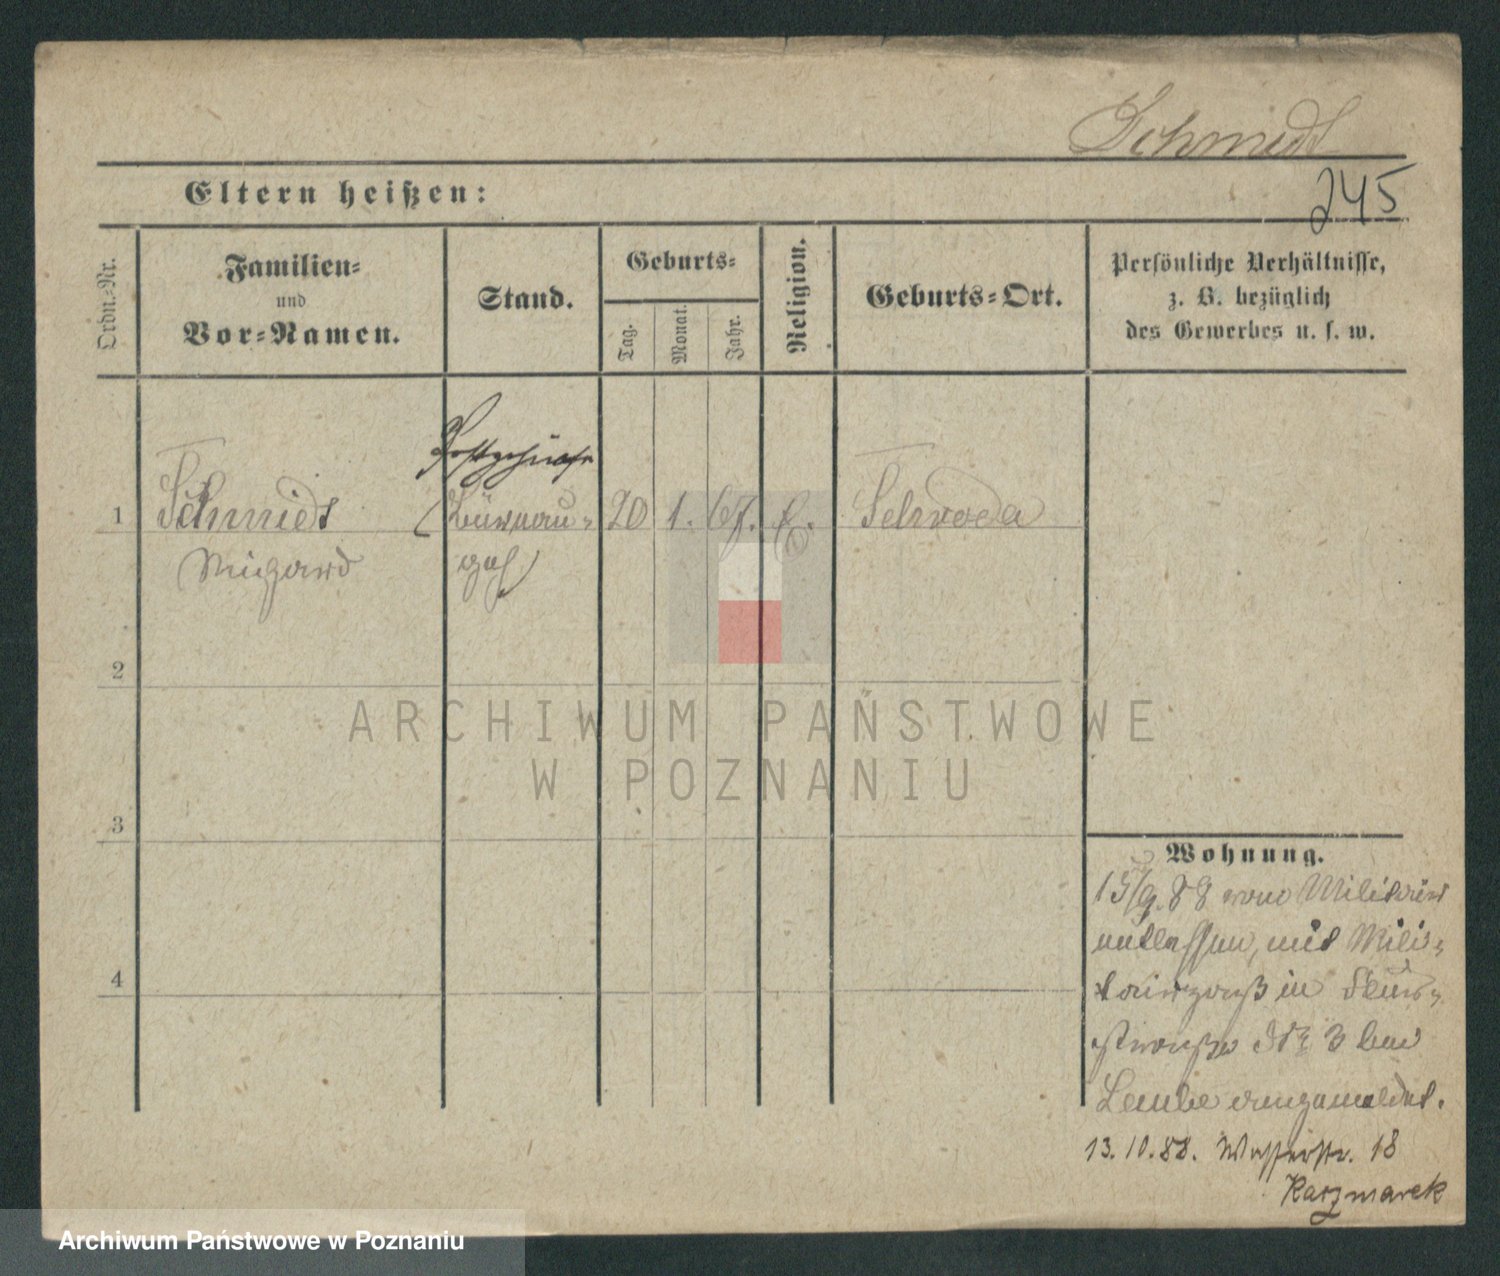 Schmidt
245
Eltern heißen:
Ordn.-Nr.
Familien-
und
Vor-Namen.
Stand.
Geburts-
Tag.
Monat.
Jahr.
Religion.
Geburts-Ort.
Persönliche Verhältnisse,
z. B. bezüglich
des Gewerbes u. s. w.
1
Schmidt
(Büreau-
20
1.
67.
Schroda
geh)
2
3
4
ARCHIWUM PAŃSTWOWE
W POZNANIU
Wohnung.
15/9. 88 vom Militair
entlassen, mit Mili-
tairpaß in
straße No 3 bei
angemeldet.
13. 10. 88. Wasserstr. 18
Kaczmarek
Archiwum Państwowe w Poznaniu